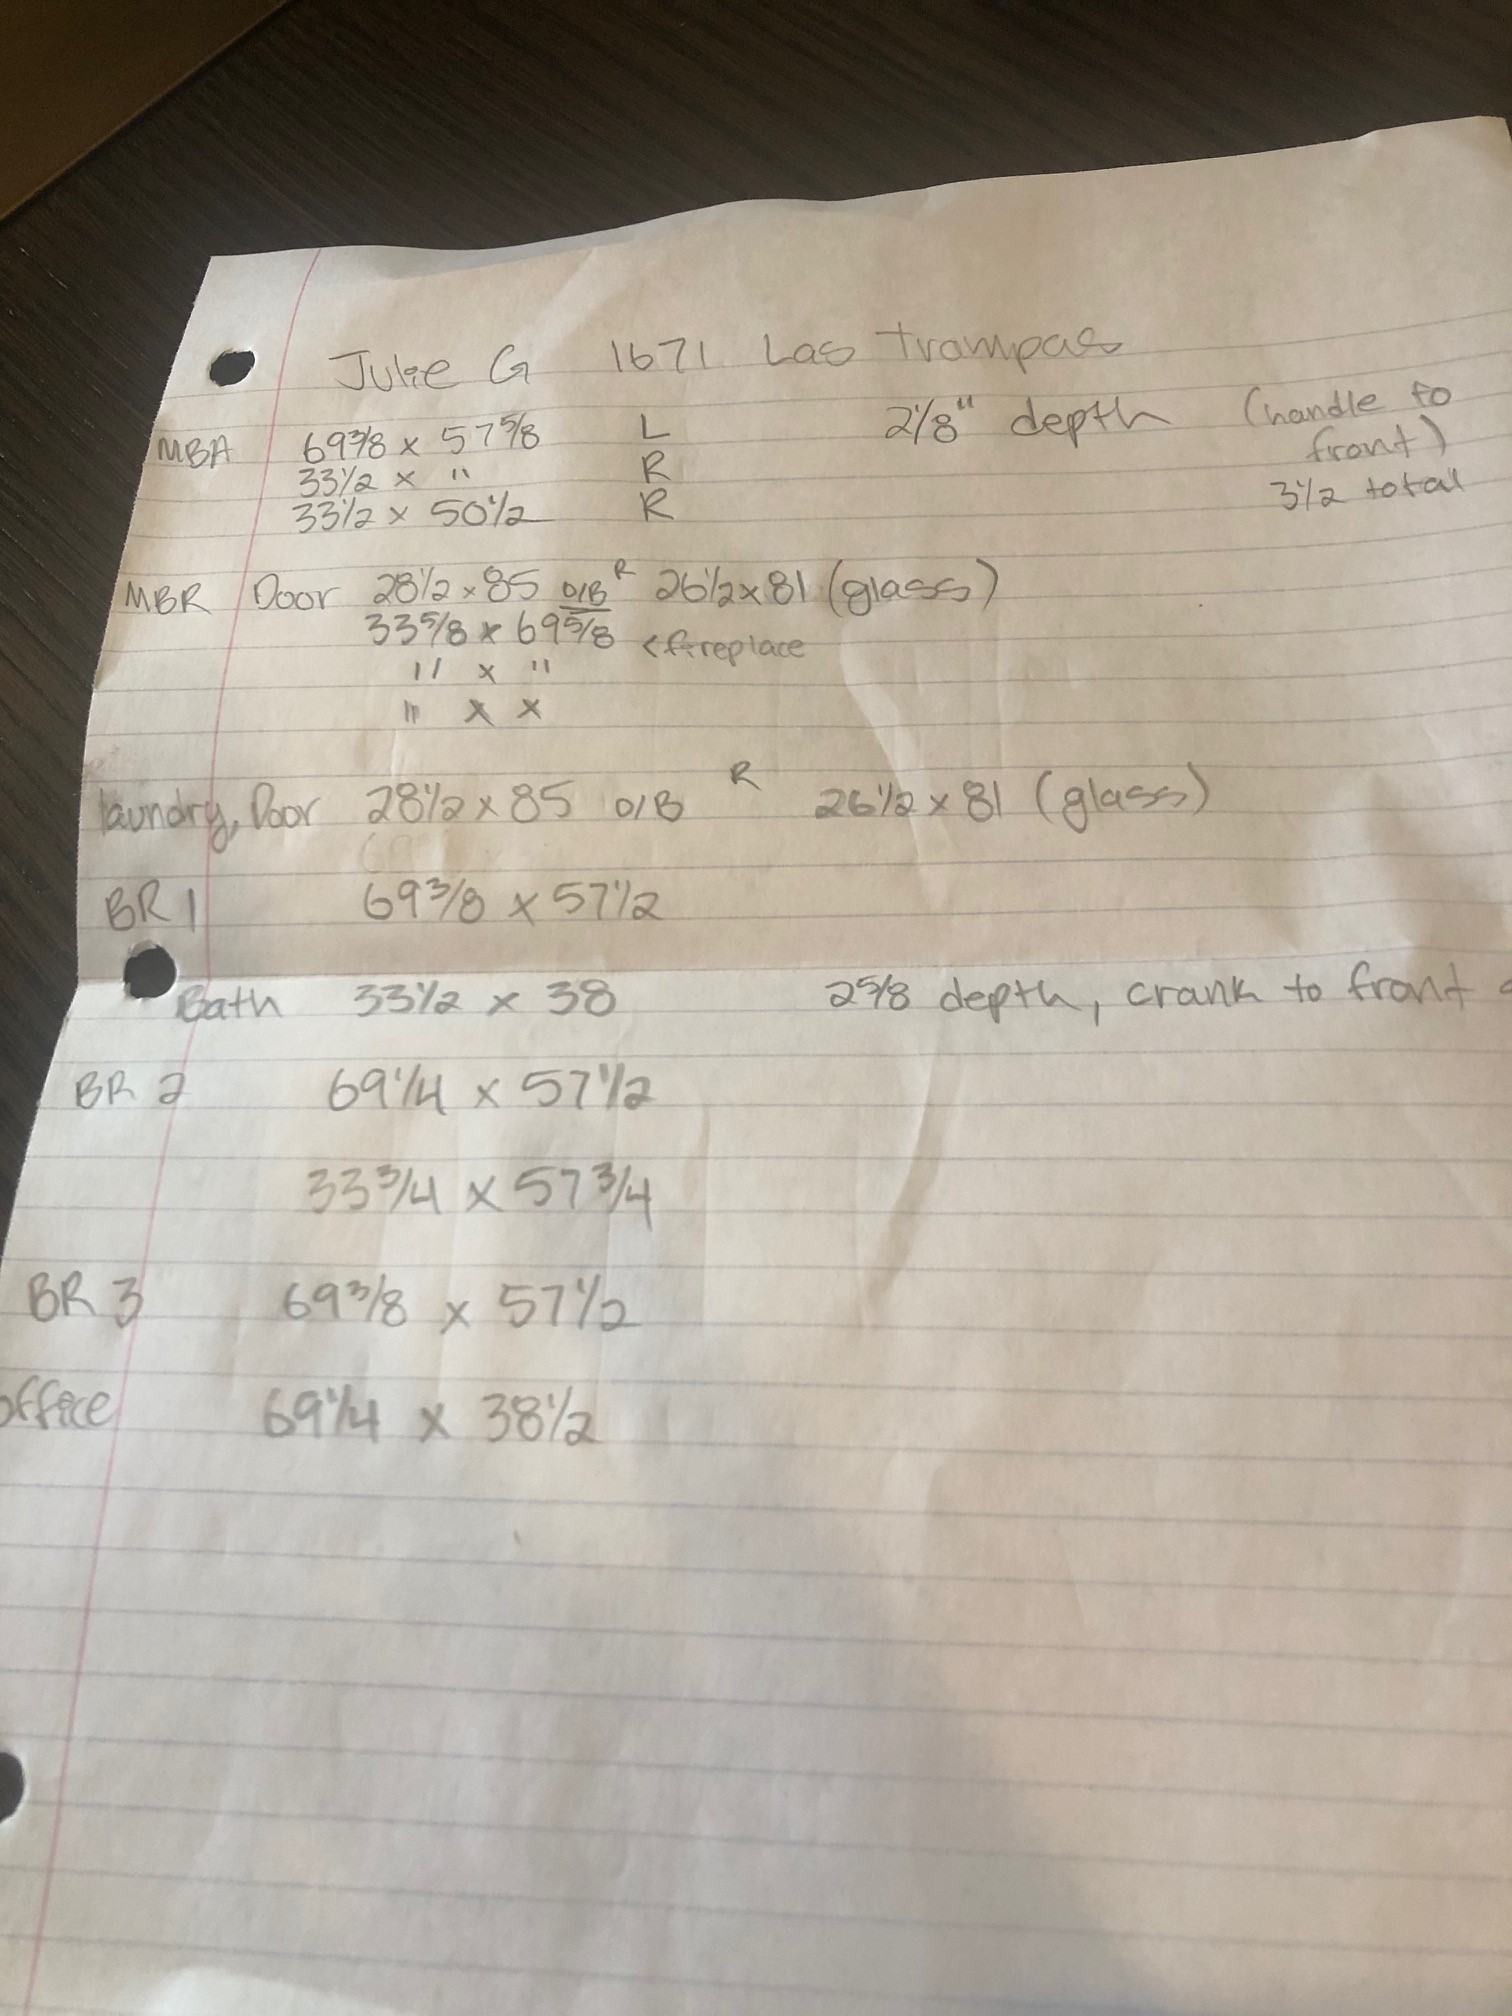 Julie G 1671 Las Trampas
MBA 69 3/8 x 57 5/8 L 2 1/8" depth (handle to front)
33 1/2 x " R 3 1/2 total
33 1/2 x 50 1/2 R
MBR Door 28 1/2 x 85 O/B R 26 1/2 x 81 (glass)
33 5/8 x 69 5/8 < fireplace
" x "
" x x
laundry, Door 28 1/2 x 85 O/B R 26 1/2 x 81 (glass)
BR 1 69 3/8 x 57 1/2
Bath 33 1/2 x 38 2 5/8 depth, crank to front
BR 2 69 1/4 x 57 1/2
33 3/4 x 57 3/4
BR 3 69 3/8 x 57 1/2
office 69 1/4 x 38 1/2